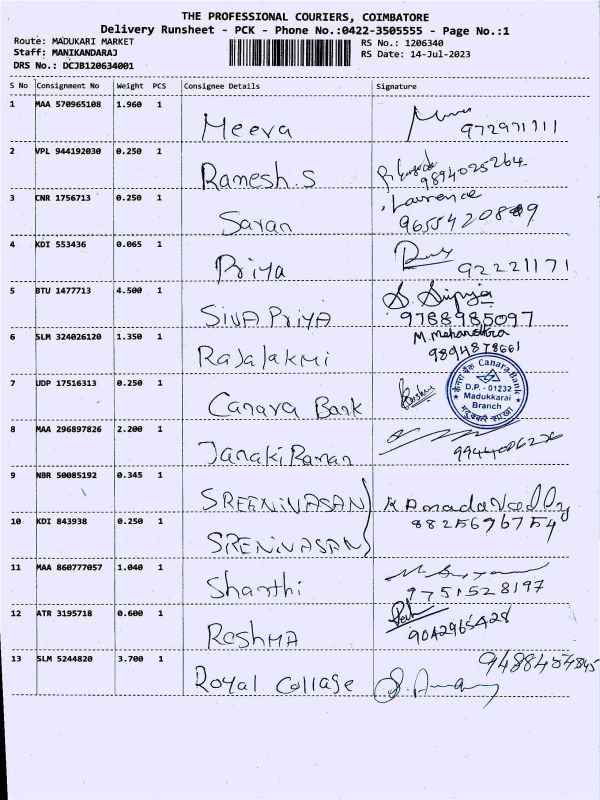 THE PROFESSIONAL COURIERS, COIMBATORE
Delivery Runsheet - PCK - Phone No.:0422-3505555 - Page No.:1
Route: MADUKARI MARKET
RS No.: 1206340
Staff: MANIKANDARAJ
RS Date: 14-Jul-2023
DRS No.: DCJB120634001
S No Consignment No Weight PCS Consignee Details Signature
1 MAA 570965108 1.960 1 Meeva
972971111
2 VPL 944192030 0.250 1 Ramesh.S
9894025264
3 CNR 1756713 0.250 1 Savan
Lawrence
4 KDI 553436 0.065 1 Priya
92221171
5 BTU 1477713 4.500 1 SIVA PRIYA
9788985097
6 SLM 324026120 1.350 1 Rajalakmi
9894878661
7 UDP 17516313 0.250 1 Canara Bank
केनरा बैंक Canara Bank
D.P. - 01232
Madukkarai
Branch
मदुक्करै शाखा
8 MAA 296897826 2.200 1 Janaki Raman
9 NBR 50085192 0.345 1 SREENIVASAN
8825676754
10 KDI 843938 0.250 1 SRENIVASAN
11 MAA 860777057 1.040 1 Shanthi
9751528197
12 ATR 3195718 0.600 1 Reshma
9042965428
13 SLM 5244820 3.700 1 Royal Collage